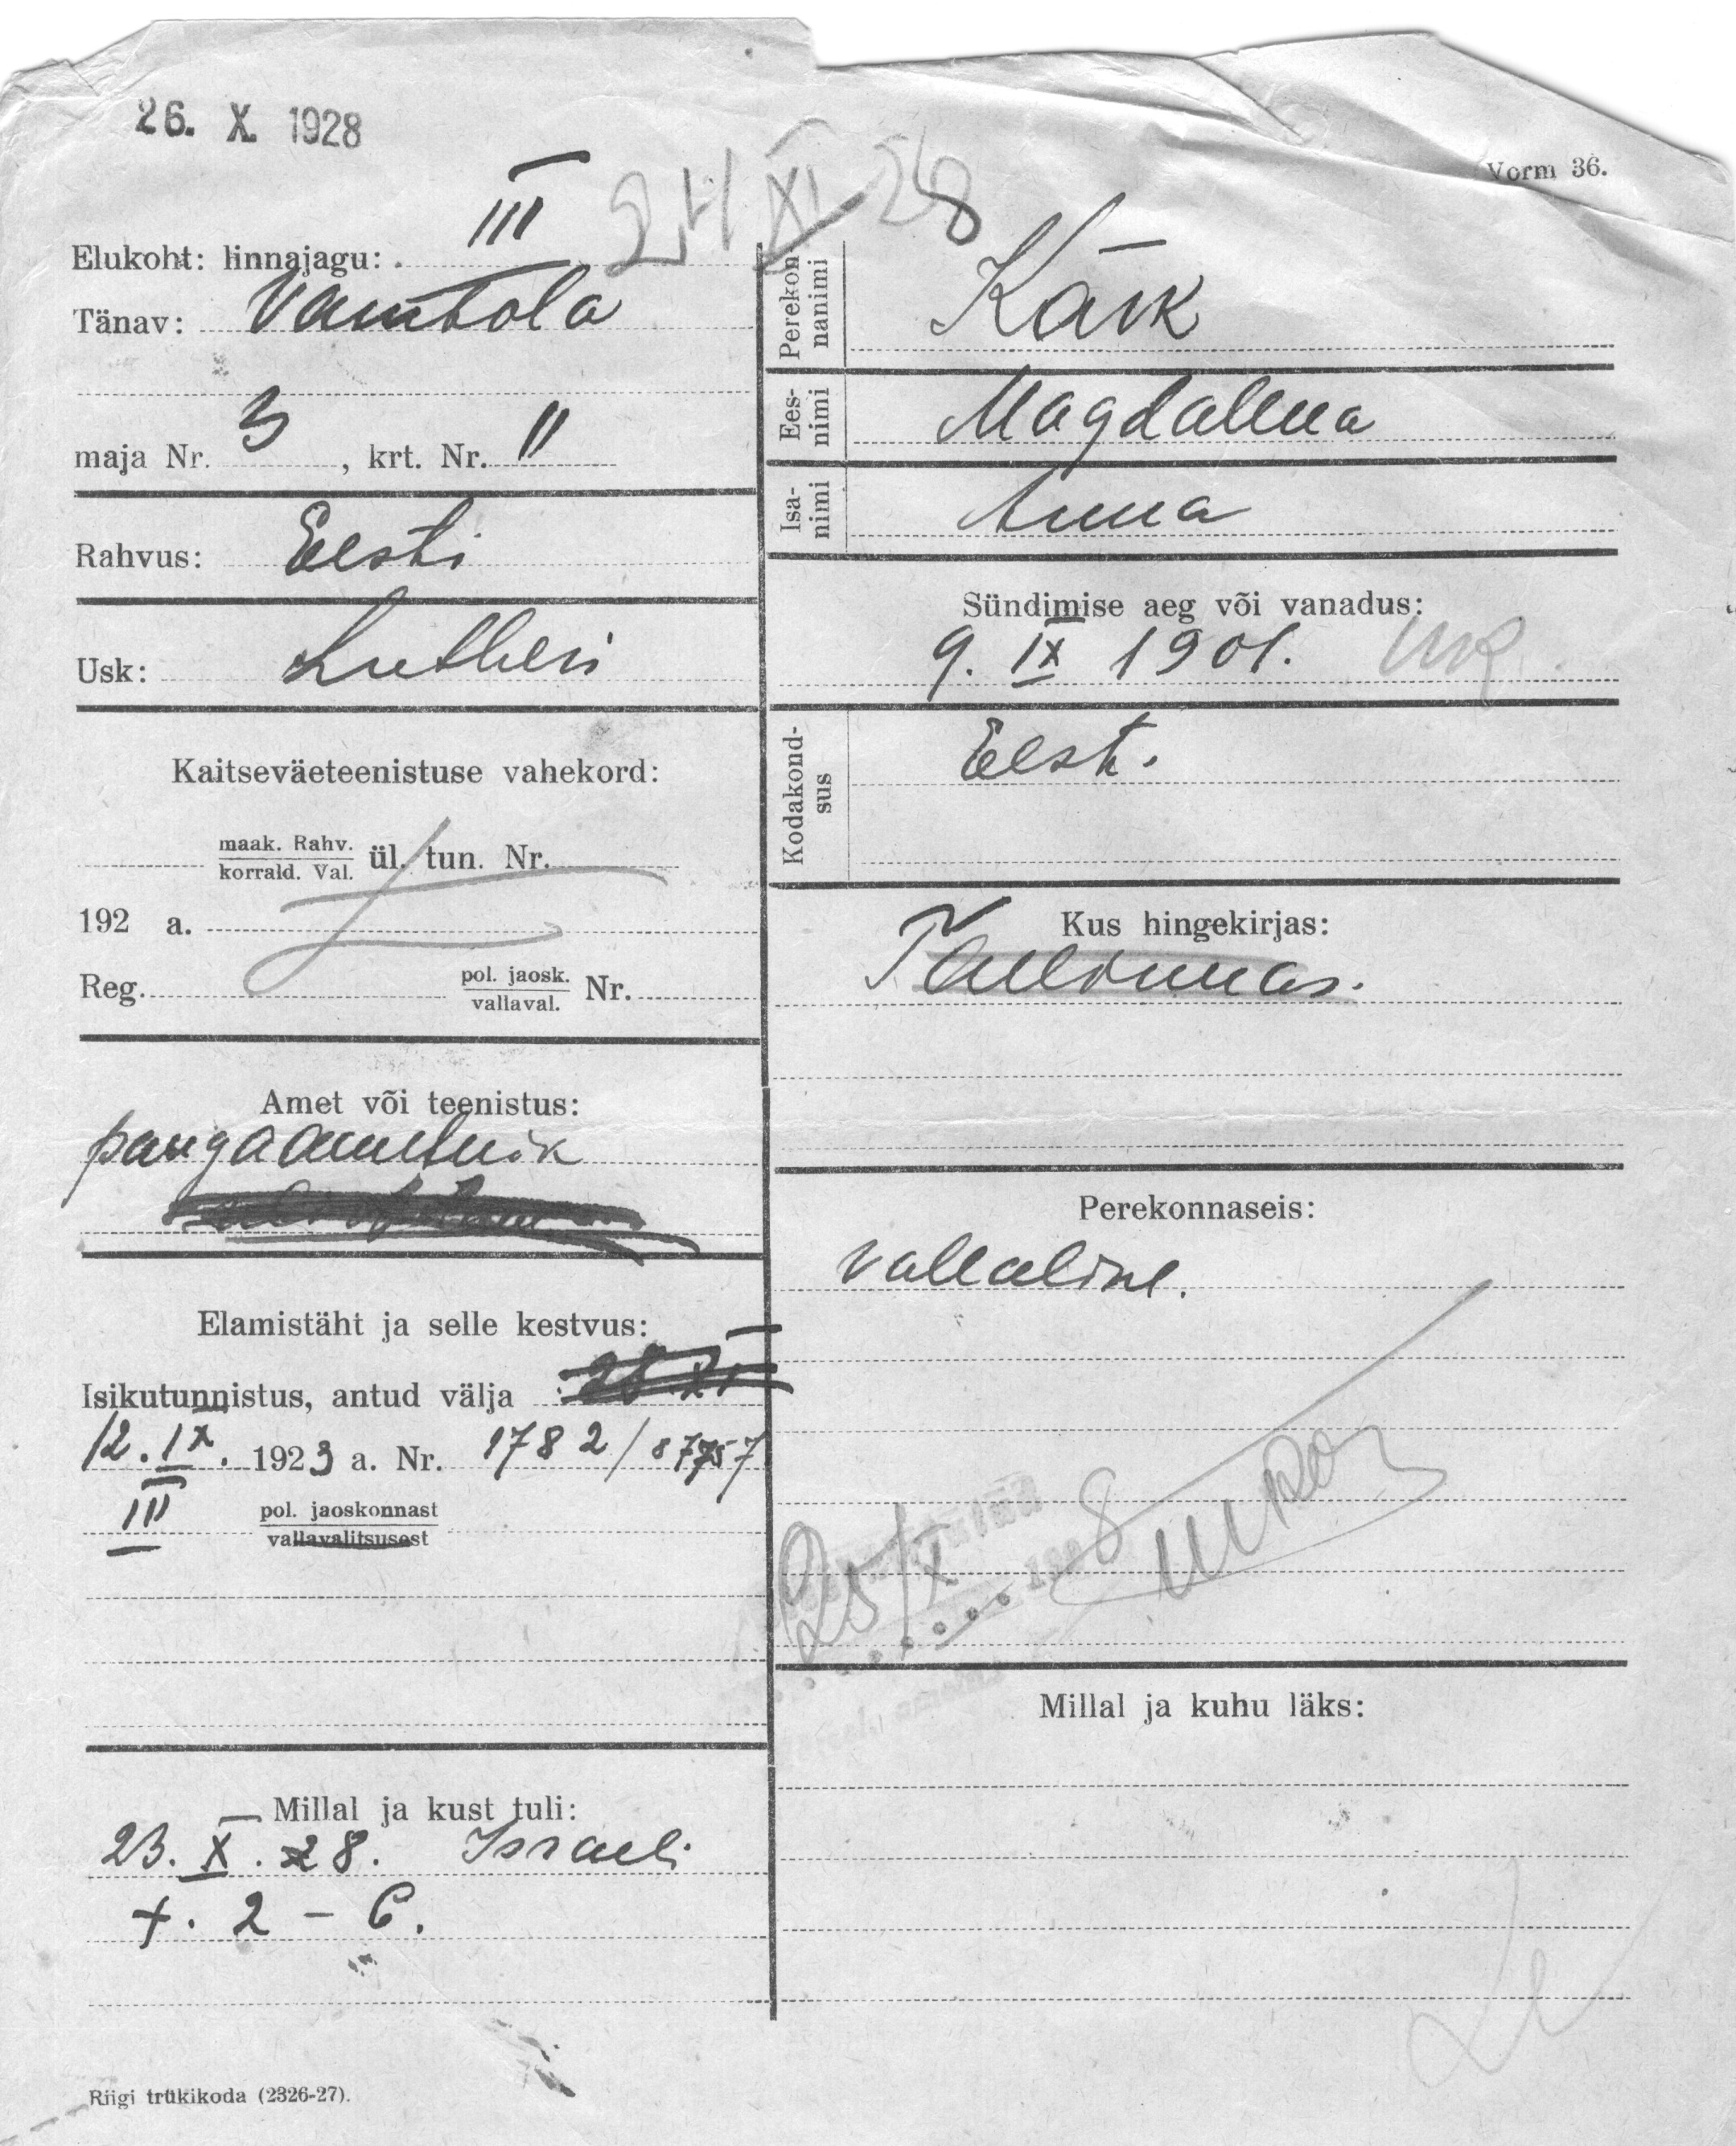 26. X. 1928
Vorm 36.
24 XI 28
Elukoht: linnajagu: III
Tänav: Vambola
maja Nr. 3, krt. Nr. 11
Rahvus: Eesti
Usk: Lutheri
Kaitseväeteenistuse vahekord:
maak. Rahv.
korrald. Val. ül. tun. Nr.
192 a.
Reg. pol. jaosk.
vallaval. Nr.
Amet või teenistus:
pangaametnik
Elamistäht ja selle kestvus:
Isikutunnistus, antud välja 28. XI
12. IX. 1923 a. Nr. 1782/87757
III pol. jaoskonnast
vallavalitsusest
Millal ja kust tuli:
23. X. 28. Israeli
t. 2 – 6.
Riigi trükikoda (2326-27).
Perekonnanimi Kärk
Eesnimi Magdaleena
Isanimi Anna
Sündimise aeg või vanadus:
9. IX 1901.
Kodakondsus Eesti.
Kus hingekirjas:
Tallinnas.
Perekonnaseis:
vallaline.
25/X 8
Millal ja kuhu läks: